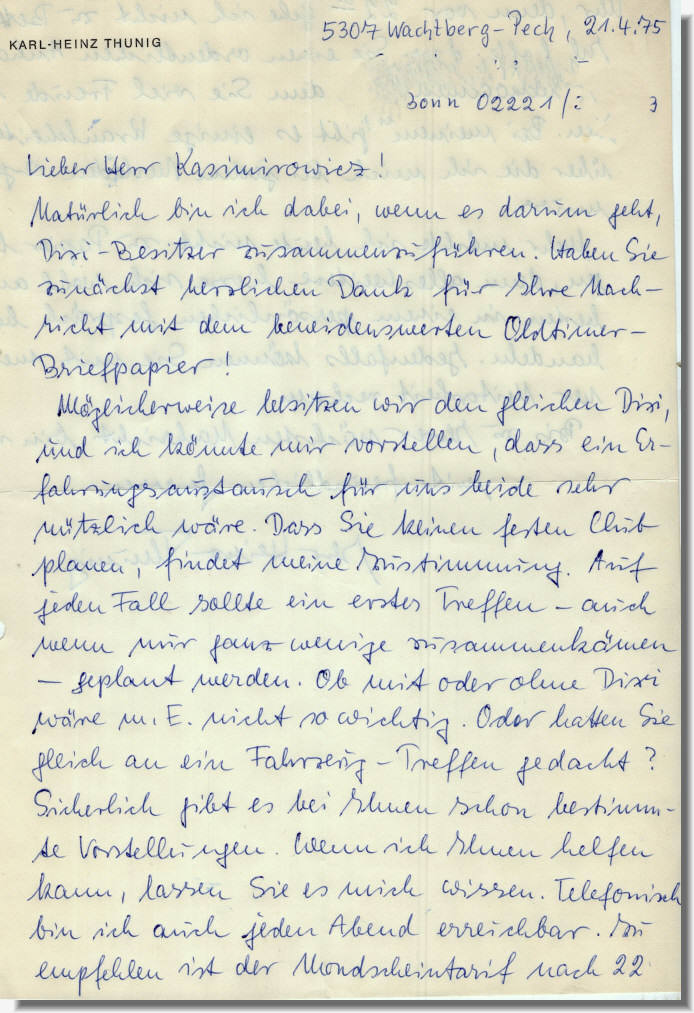 KARL-HEINZ THUNIG
5307 Wachtberg-Pech, 21.4.75
Bonn 02221/
Lieber Herr Kasimirowicz!
Natürlich bin ich dabei, wenn es darum geht,
Dixi-Besitzer zusammenzuführen. Haben Sie
zunächst herzlichen Dank für Ihre Nach-
richt mit dem beneidenswerten Oldtimer-
Briefpapier!
Möglicherweise besitzen wir den gleichen Dixi,
und ich könnte mir vorstellen, dass ein Er-
fahrungsaustausch für uns beide sehr
nützlich wäre. Dass Sie keinen festen Club
planen, findet meine Zustimmung. Auf
jeden Fall sollte ein erstes Treffen – auch
wenn nur ganz wenige zusammenkämen
– geplant werden. Ob mit oder ohne Dixi
wäre m. E. nicht so wichtig. Oder hatten Sie
gleich an ein Fahrzeug-Treffen gedacht?
Sicherlich gibt es bei Ihnen schon bestimm-
te Vorstellungen. Wenn ich Ihnen helfen
kann, lassen Sie es mich wissen. Telefonisch
bin ich auch jeden Abend erreichbar. Zu
empfehlen ist der Mondscheintarif nach 22